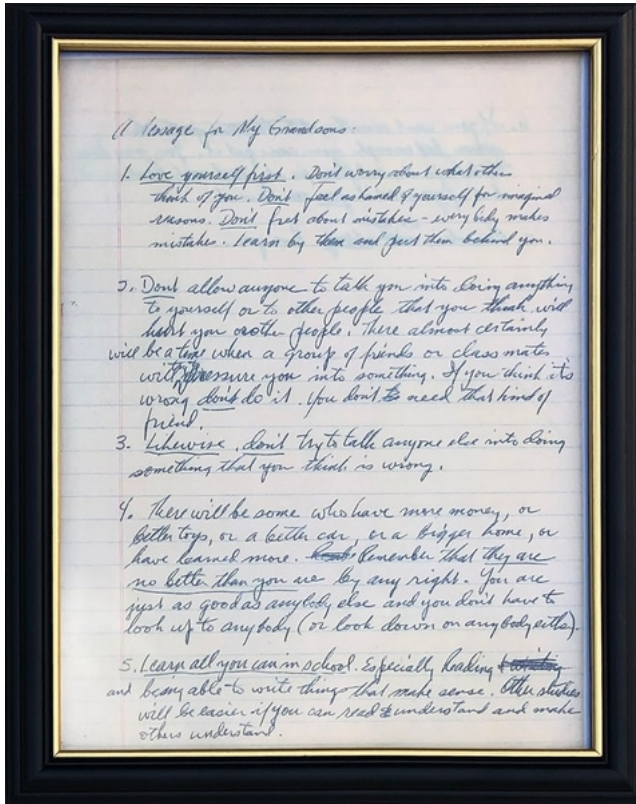 A Message for My Grandsons:
1. Love yourself first. Don't worry about what others
think of you. Don't feel ashamed of yourself for imagined
reasons. Don't fret about mistakes - everybody makes
mistakes. Learn by them and put them behind you.
2. Don't allow anyone to talk you into doing anything
to yourself or to other people that you think will
hurt you or other people. There almost certainly
will be a time when a group of friends or class mates
will pressure you into something. If you think it's
wrong don't do it. You don't need that kind of
friend.
3. Likewise, don't try to talk anyone else into doing
something that you think is wrong.
4. There will be some who have more money, or
better toys, or a better car, or a bigger home, or
have learned more. Remember that they are
no better than you are by any right. You are
just as good as anybody else and you don't have to
look up to anybody (or look down on anybody either).
5. Learn all you can in school. Especially Reading
and being able to write things that make sense. Other studies
will be easier if you can read & understand and make
others understand.